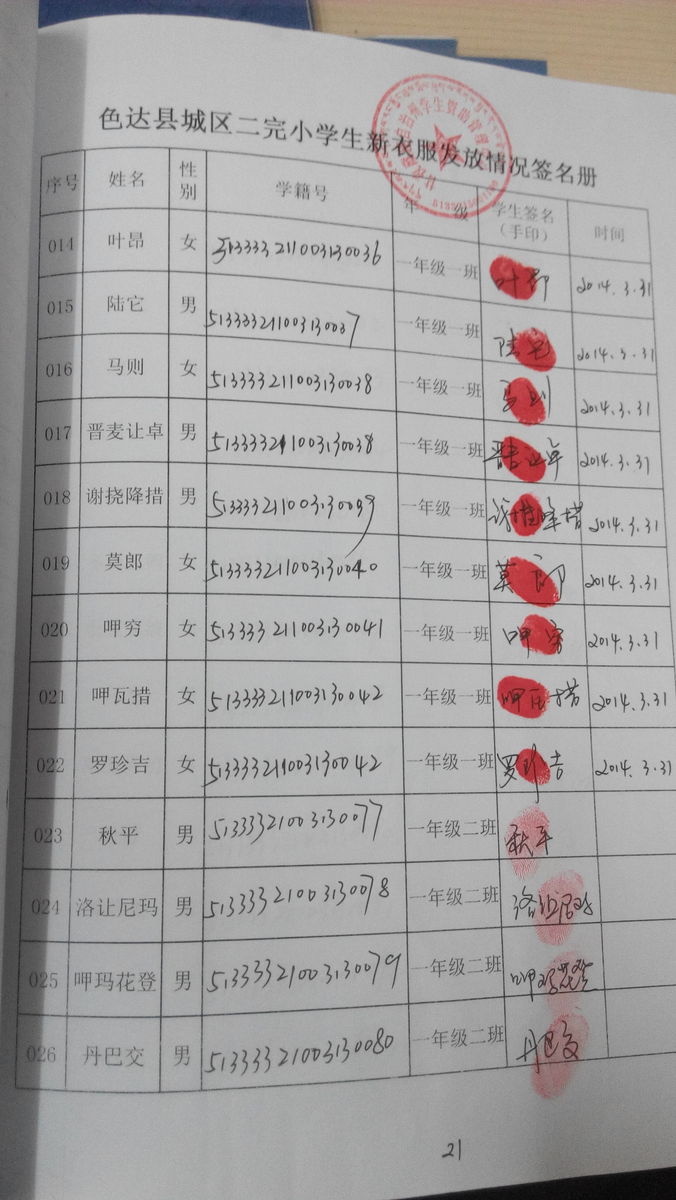 色达县城区二完小学生新衣服发放情况签名册
序号 姓名 性别 学籍号 年 级 学生签名（手印） 时间
014 叶昂 女 513333211003130036 一年级一班 叶昂 2014.3.31
015 陆它 男 5133332110031300 37 一年级一班 陆它 2014.3.31
016 马则 女 513333211003130038 一年级一班 马则 2014.3.31
017 晋麦让卓 男 513333211003130038 一年级一班 2014.3.31
018 谢挠降措 男 513333211003130039 一年级一班 2014.3.31
019 莫郎 女 513333211003130040 一年级一班 莫郎 2014.3.31
020 呷穷 女 513333211003130041 一年级一班 呷穷 2014.3.31
021 呷瓦措 女 513333211003130042 一年级一班 呷瓦措 2014.3.31
022 罗珍吉 女 513333211003130042 一年级一班 罗珍吉 2014.3.31
023 秋平 男 51333321003130077 一年级二班 秋平
024 洛让尼玛 男 51333321003130078 一年级二班
025 呷玛花登 男 51333321003130079 一年级二班
026 丹巴交 男 51333321003130080 一年级二班 丹巴交
21